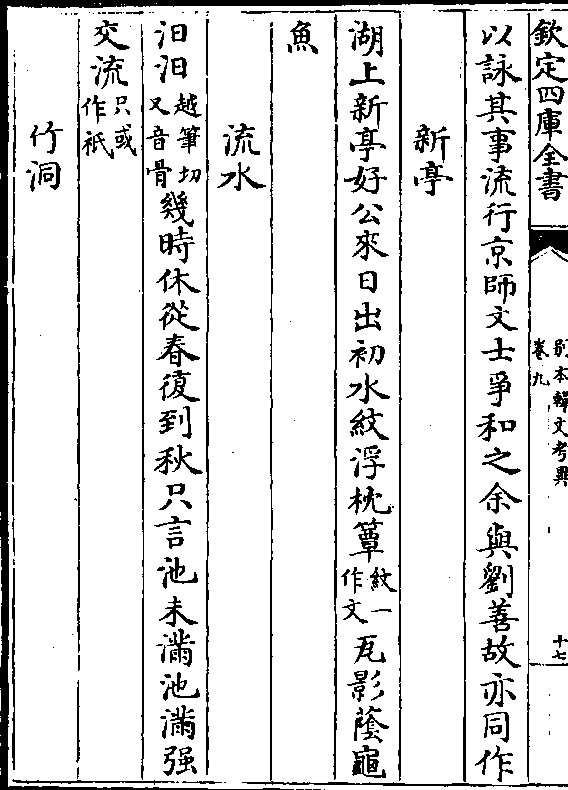 欽定四庫全書
別本韓文考異
卷九
十七
以詠其事流行京師文士爭和之余與劉善故亦同作
新亭
湖上新亭好公來日出初水紋浮枕簟紋一作文瓦影蔭龜
魚
流水
汩汩越筆切又音骨幾時休從春復到秋只言池未滿池滿强
交流只或作祇
竹洞